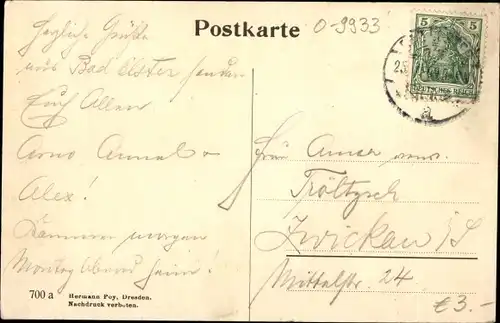 Postkarte
0-9933
5 5
DEUTSCHES REICH
25.
a
Herzliche Grüße
aus Bad Elster sendet
Euch Allen
Arno, Anna
Alex!
Kommen morgen
Montag Abend heim!
Frau Anna
Tröltzsch
Zwickau i/S
Mittelstr. 24
700 a
Hermann Poy, Dresden.
Nachdruck verboten.
€ 3.-